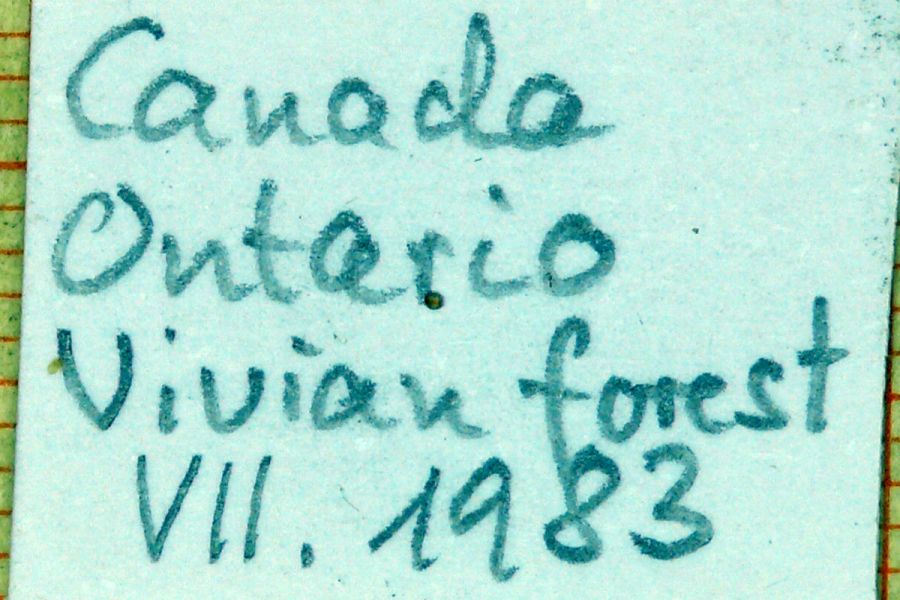 Canada
Ontario
Vivian forest
VII. 1983